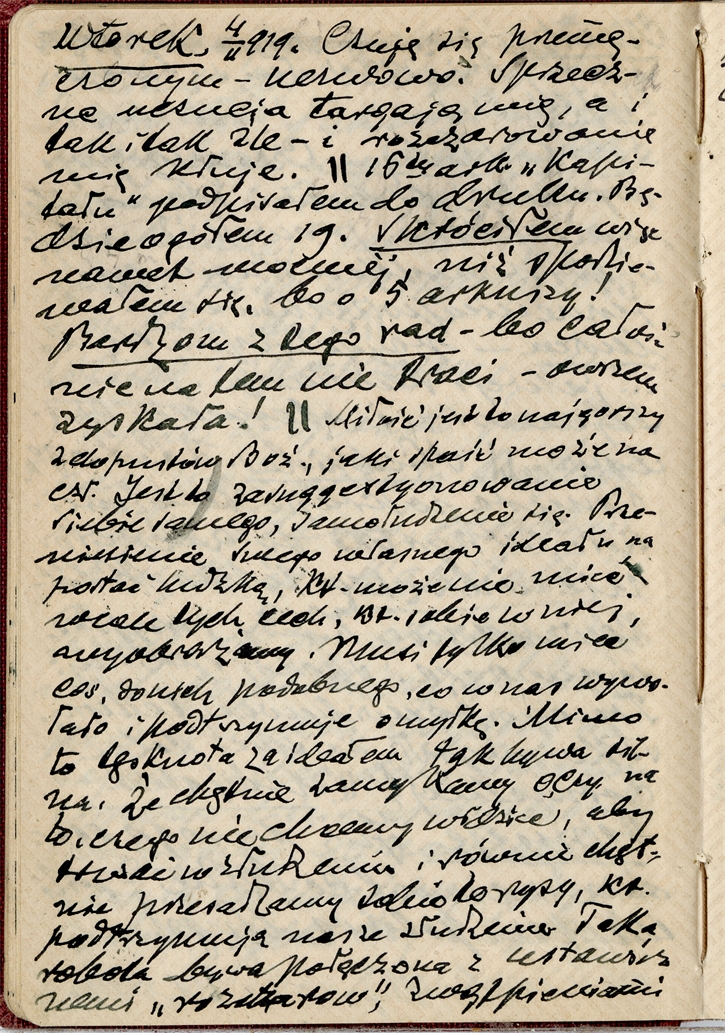 Wtorek. 4/II 919. Czuję się przemę-
czonym – nerwowo. Sprzecz-
ne uczucia targają mię, a i
tak i tak źle – i rozczarowanie
mię kłuje. || 16ty ark. „Kapi-
tału" podpisałem do druku. Bę-
dzie ogółem 19. Skróciłem więc
nawet mocniej, niż spodzie-
wałem się, bo o 5 arkuszy!
Bardzom z tego rad – bo całość
nic na tem nie traci – owszem
zyskała! || Miłość jest to najgorszy
z dopustów Boż., jaki spaść może na
czł. Jest to zasuggestyonowanie
siebie samego, samołudzenie się. Prze-
niesienie swego własnego ideału na
postać ludzką, kt. może nie mieć
wcale tych cech, kt. sobie w niej,
wyobrażamy. Musi tylko mieć
coś, do nich podobnego, co w nas wywo-
łało i podtrzymuje omyłkę. Mimo
to tęsknota za ideałem tak bywa sil-
na, że chętnie zamykamy oczy na
to, czego nie chcemy widzieć, aby
trwać w złudzeniu i równie chęt-
nie przesadzamy te rysy, kt.
podtrzymują nasze złudzenie. Taka
robota bywa połączona z ustawicz
nemi „rozczarow", zwątpieniami